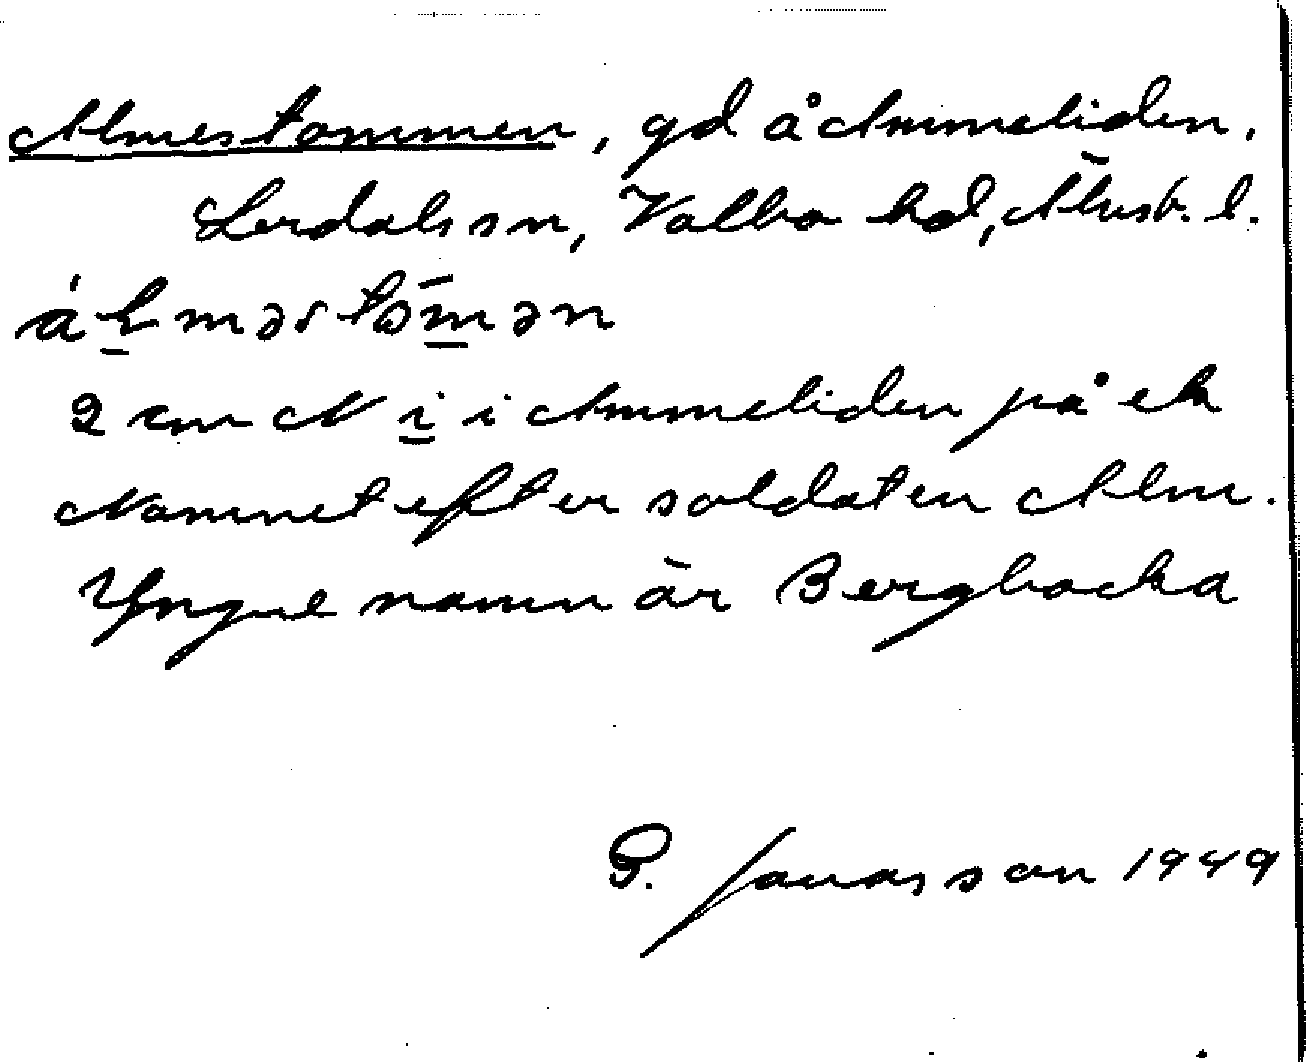 Almestommen, gd å Ammeliden.
Lerdals sn, Valbo hd, Älvsb. l.
2 cm N i i Ammeliden på ek
Namnet efter soldaten Alm.
Yngre namn är Bergbacka
G. Jonasson 1949